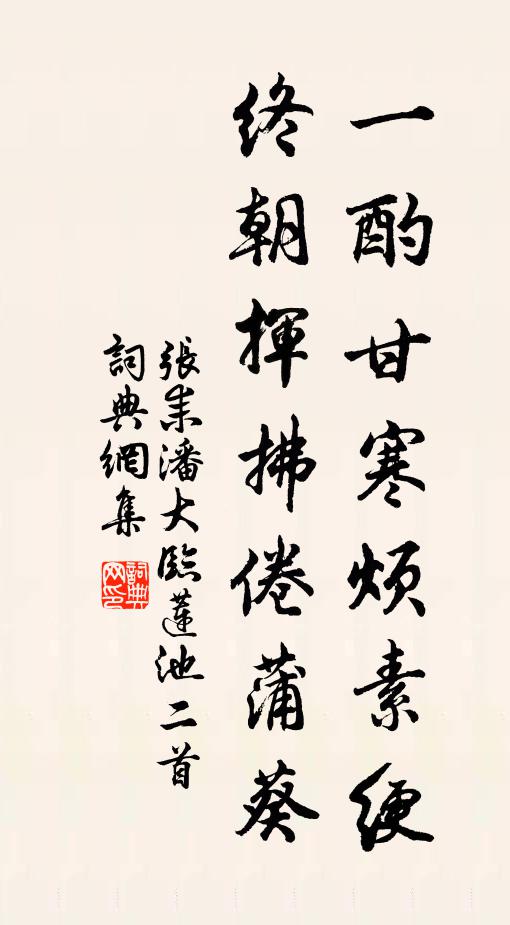 一酌甘寒煩素綆
終朝揮拂倦蒲葵
張耒潘大臨蓮池二首
詞典網集
詞典網印